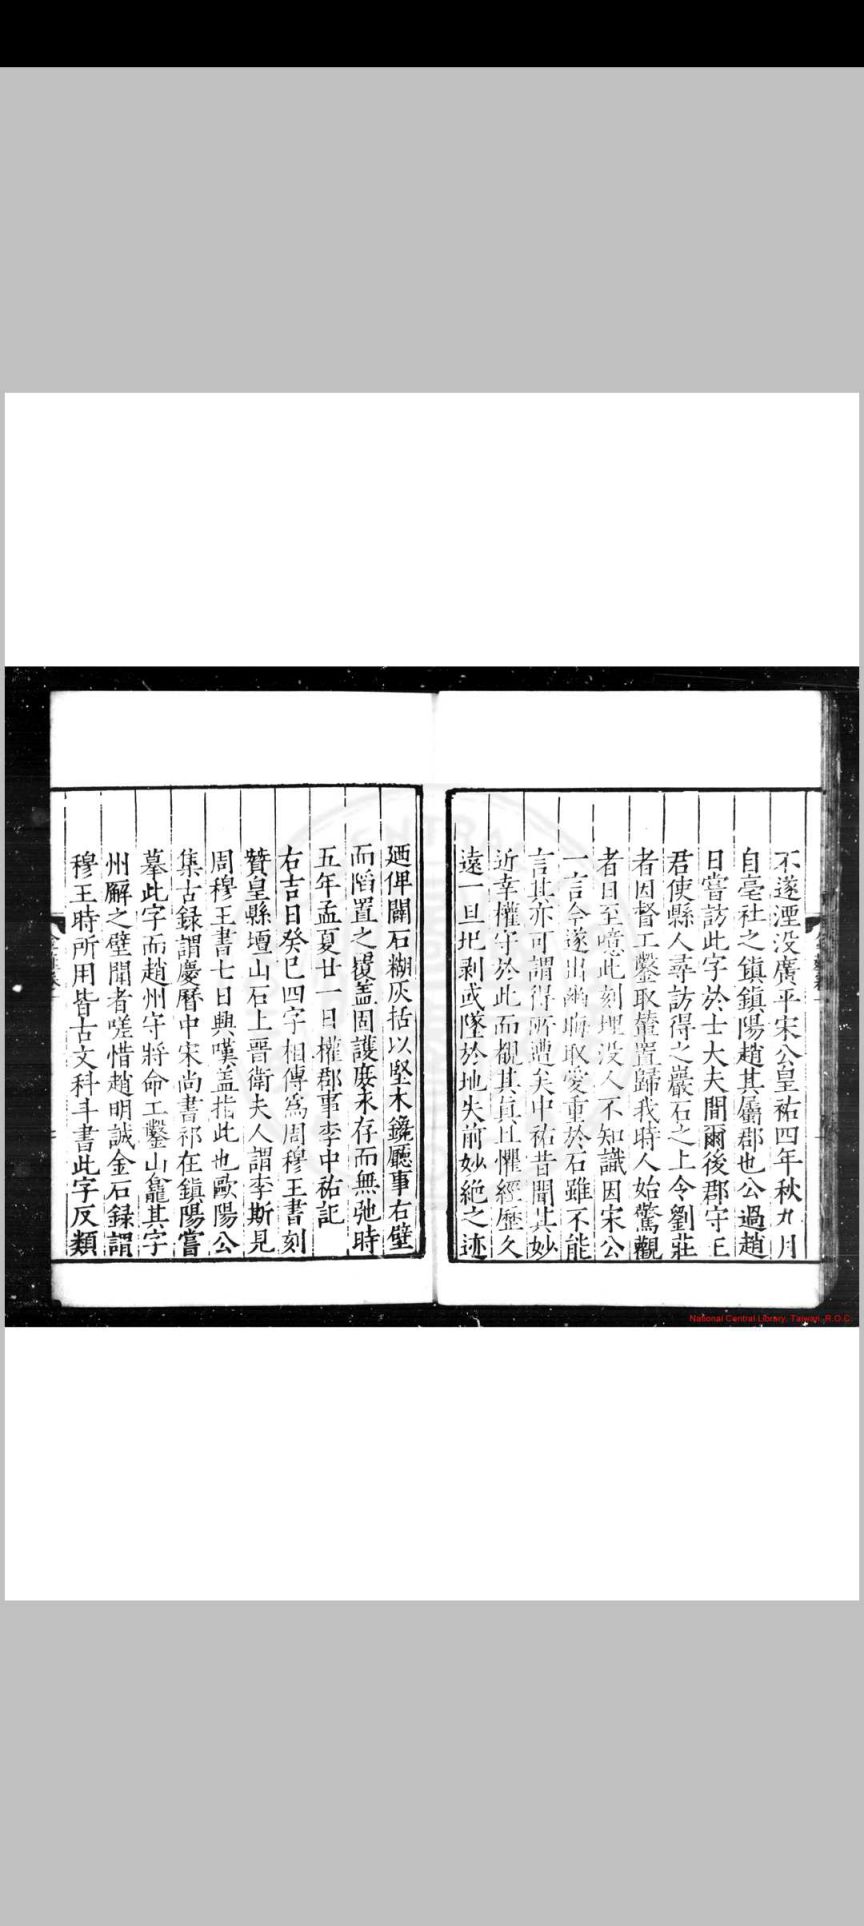 不遂湮没廣平宋公皇祐四年秋九月
自亳社之鎮鎮陽趙其屬郡也公過趙
日嘗訪此字於士大夫間爾後郡守王
君使縣人尋訪得之巖石之上令劉莊
者因督工鑿取輦置歸我時人始驚觀
者日至噫此刻埋没人不知識因宋公
一言令遂出幽晦取愛重於石雖不能
言其亦可謂得所遭矣中祐昔聞其妙
近幸權守於此而覩其真且懼經歷久
遠一旦圯剥或墜於地失前妙絶之迹
廼俾闢石糊灰括以堅木鑱廳事右壁
而䧟置之覆盖固護庶永存而無弛時
五年孟夏廿一日權郡事李中祐記
右吉日癸巳四字相傳爲周穆王書刻
贊皇縣壇山石上晋衛夫人謂李斯見
周穆王書七日興嘆盖指此也歐陽公
集古録謂慶曆中宋尚書祁在鎮陽嘗
摹此字而趙州守將命工鑿山龕其字
州廨之壁聞者嗟惜趙明誠金石録謂
穆王時所用皆古文科斗書此字反類
National Central Library, Taiwan, R.O.C.